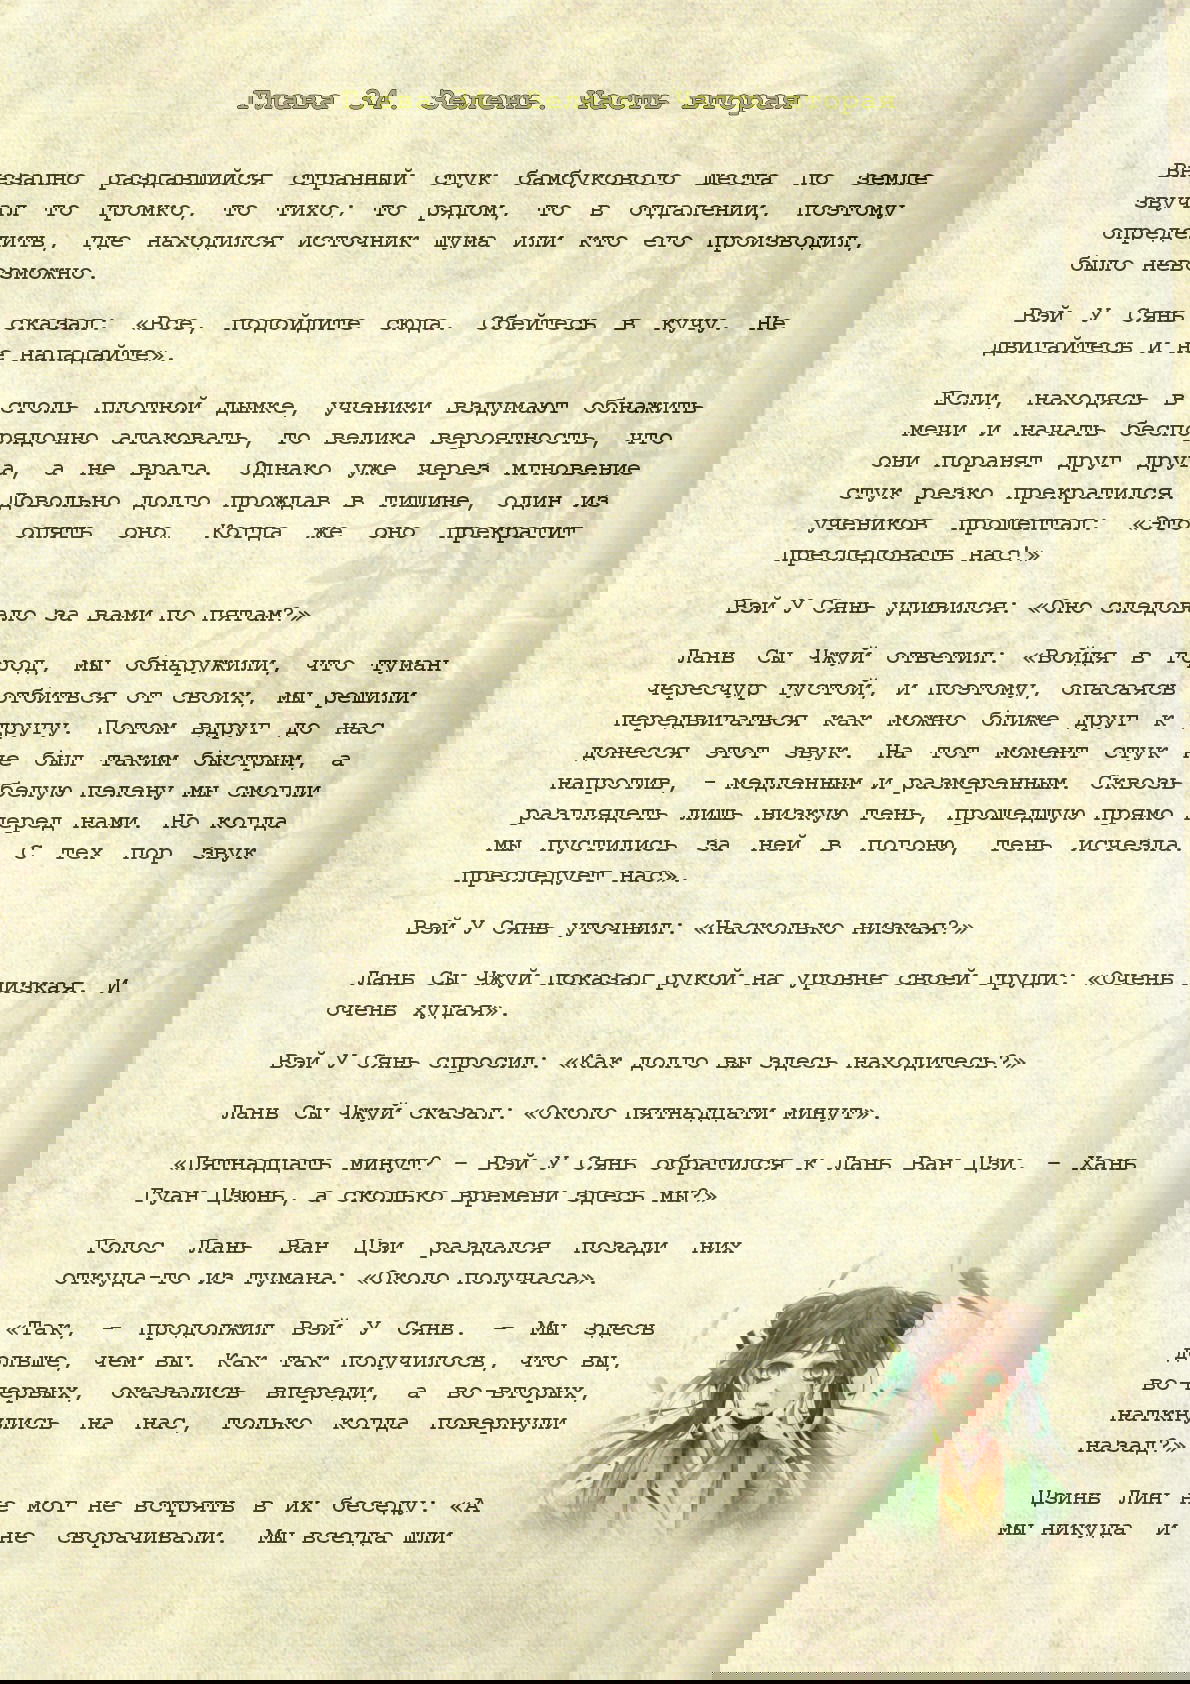 Глава 34. Зелень. Часть вторая
Внезапно раздавшийся странный стук бамбукового шеста по земле
звучал то громко, то тихо; то рядом, то в отдалении, поэтому
определить, где находился источник шума или кто его производил,
было невозможно.
Вэй У Сянь сказал: «Все, подойдите сюда. Сбейтесь в кучу. Не
двигайтесь и не нападайте».
Если, находясь в столь плотной дымке, ученики вздумают обнажить
мечи и начать беспорядочно атаковать, то велика вероятность, что
они поранят друг друга, а не врага. Однако уже через мгновение
стук резко прекратился. Довольно долго прождав в тишине, один из
учеников прошептал: «Это опять оно. Когда же оно прекратит
преследовать нас!»
Вэй У Сянь удивился: «Оно следовало за вами по пятам?»
Лань Сы Чжуй ответил: «Войдя в город, мы обнаружили, что туман
чересчур густой, и поэтому, опасаясь отбиться от своих, мы решили
передвигаться как можно ближе друг к другу. Потом вдруг до нас
донесся этот звук. На тот момент стук не был таким быстрым, а
напротив, – медленным и размеренным. Сквозь белую пелену мы смогли
разглядеть лишь низкую тень, прошедшую прямо перед нами. Но когда
мы пустились за ней в погоню, тень исчезла. С тех пор звук
преследует нас».
Вэй У Сянь уточнил: «Насколько низкая?»
Лань Сы Чжуй показал рукой на уровне своей груди: «Очень низкая. И
очень худая».
Вэй У Сянь спросил: «Как долго вы здесь находитесь?»
Лань Сы Чжуй сказал: «Около пятнадцати минут».
«Пятнадцать минут? – Вэй У Сянь обратился к Лань Ван Цзи. – Хань
Гуан Цзюнь, а сколько времени здесь мы?»
Голос Лань Ван Цзи раздался позади них
откуда-то из тумана: «Около получаса».
«Так, – продолжил Вэй У Сянь. – Мы здесь
дольше, чем вы. Как так получилось, что вы,
во-первых, оказались впереди, а во-вторых,
наткнулись на нас, только когда повернули
назад?»
Цзинь Лин не мог не встрять в их беседу: «А
мы никуда и не сворачивали. Мы всегда шли